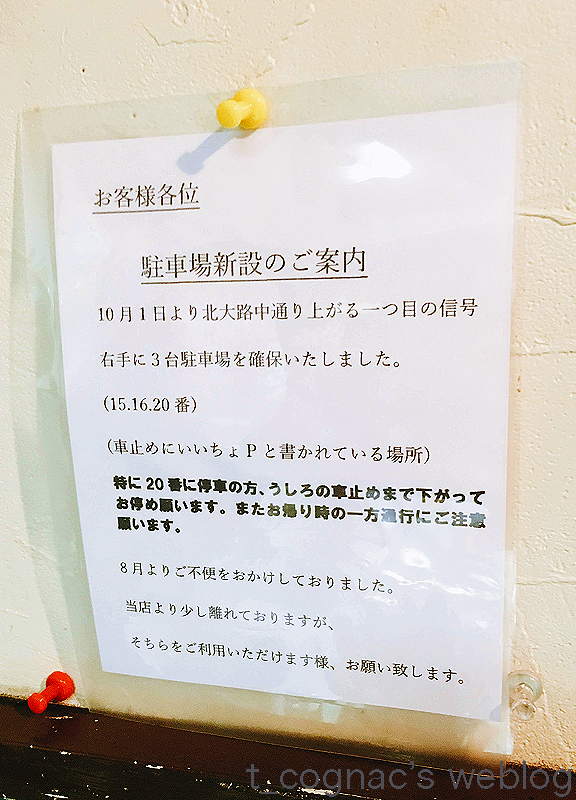 お客様各位
駐車場新設のご案内
10月1日より北大路中通り上がる一つ目の信号
右手に3台駐車場を確保いたしました。
(15.16.20番)
(車止めにいいちょPと書かれている場所)
特に20番に停車の方、うしろの車止めまで下がって
お停め願います。またお帰り時の一方通行にご注意
願います。
8月よりご不便をおかけしておりました。
当店より少し離れておりますが、
そちらをご利用いただけます様、お願い致します。
t_cognac's weblog